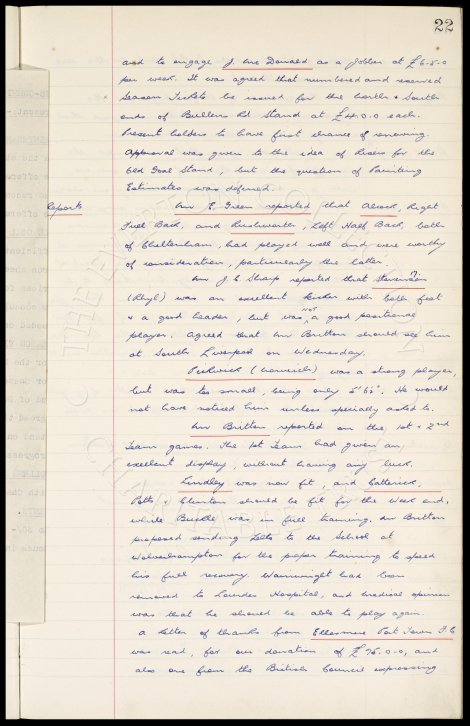 22
and to engage J. Mc Donald as a Jobber at £6-5-0
per week. It was agreed that numbered and reserved
Season Tickets be issued for the North & South
ends of Bullens Rd Stand at £4.0.0 each.
Present holders to have first chance of renewing.
Approval was given to the idea of Risers for the
Old Goal Stand, but the question of Painting
Estimates was deferred.
Reports Mr E. Green reported that Alcock, Right
Full Back, and Rushworth, Left Half Back, both
of Cheltenham, had played well and were worthy
of consideration, particularly the latter.
Mr J. C. Sharp reported that Stevenson
(Rhyl) was an excellent kicker with both feet
& a good header, but was not a good positional
player. Agreed that Mr Britton should see him
at South Liverpool on Wednesday.
(Norwich) was a strong player,
but was too small, being only 5' 6½". He would
not have noticed him unless specially asked to.
Mr Britton reported on the 1st & 2nd
Team games. The 1st Team had given an
excellent display, without having any luck.
Lindley was now fit, and Catterick,
Potts & Clinton should be fit for the week end,
while Buckle was in full training. Mr Britton
proposed sending Potts to the School at
Wolverhampton for the proper training to speed
his full recovery. Wainwright had been
removed to Lourdes Hospital, and medical opinion
was that he should be able to play again.
A letter of thanks from Ellesmere Port Town F.C
was read, for our donation of £75.0.0, and
also one from the British Council expressing